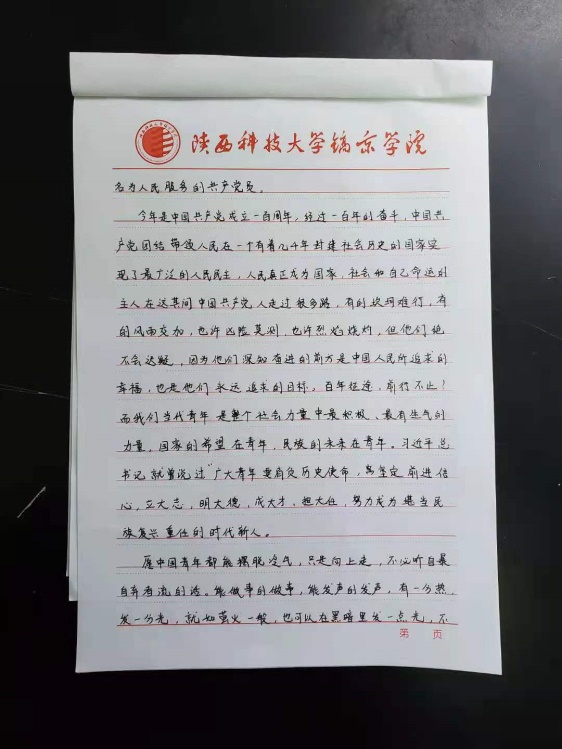 陕西科技大学镐京学院
名为人民服务的共产党员。
今年是中国共产党成立一百周年,经过一百年的奋斗,中国共
产党团结带领人民在一个有着几千年封建社会历史的国家实
现了最广泛的人民民主,人民真正成为国家,社会和自己命运的
主人在这其间中国共产党人走过很多路,有的坎坷难行,有
的风雨交加,也许凶险莫测,也许烈焰烧灼,但他们绝
不会迟疑,因为他们深知奋进的前方是中国人民所追求的
幸福,也是他们永远追求的目标,百年征途,前行不止!
而我们当代青年是整个社会力量中最积极、最有生气的
力量,国家的希望在青年,民族的未来在青年。习近平总
书记就曾说过"广大青年要肩负历史使命,坚定前进信
心,立大志,明大德,成大才,担大任,努力成为堪当民
族复兴重任的时代新人。
愿中国青年都能摆脱冷气,只是向上走,不必听自暴
自弃者流的话。能做事的做事,能发声的发声,有一分热,
发一分光,就如萤火一般,也可以在黑暗里发一点光,不
第 页